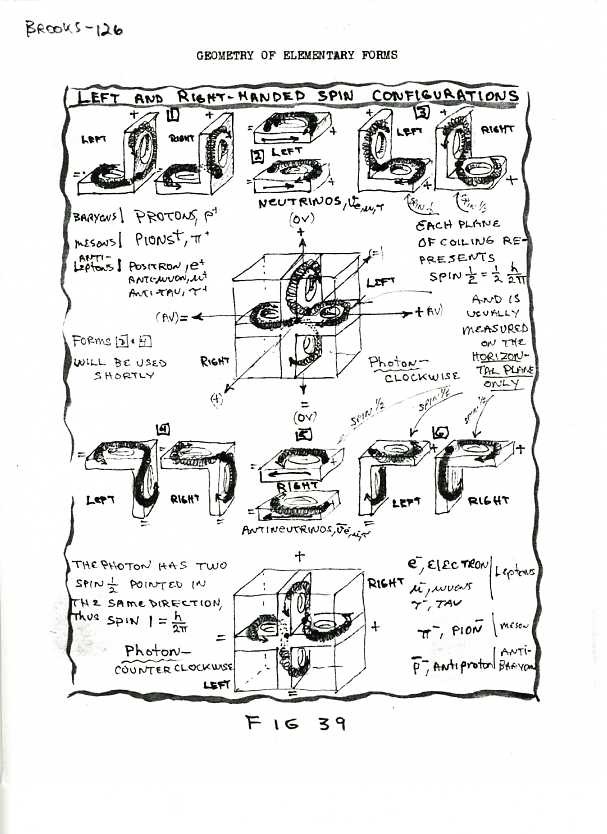 BROOKS-126
GEOMETRY OF ELEMENTARY FORMS
LEFT AND RIGHT-HANDED SPIN CONFIGURATIONS
1
LEFT
RIGHT
2
LEFT
3
LEFT
RIGHT
NEUTRINOS, νe,μ,τ
SPIN-½
SPIN-½
BARYONS PROTONS, p+
MESONS PIONS+, π+
ANTI-
LEPTONS POSITRON, e+
ANTIMUON, μ+
ANTITAU, τ+
FORMS 3 & 4
WILL BE USED
SHORTLY
(OV)
+
(=)
LEFT
(AV)=
+AV)
RIGHT
(+)
=
(OV)
EACH PLANE
OF COILING RE-
PRESENTS
SPIN ½ = ½ h/2π
AND IS
USUALLY
MEASURED
ON THE
HORIZON-
TAL PLANE
ONLY
PHOTON-
CLOCKWISE
SPIN ½
SPIN ½
SPIN ½
4
LEFT
RIGHT
5
RIGHT
6
LEFT
RIGHT
ANTINEUTRINOS, ν̄e,μ,τ
THE PHOTON HAS TWO
SPIN ½ POINTED IN
THE SAME DIRECTION,
THUS SPIN 1 = h/2π
PHOTON-
COUNTERCLOCKWISE
+
RIGHT
=
+
LEFT
=
e-, ELECTRON
μ-, MUONS
τ-, TAU
Leptons
π-, PION-
MESON
p̄-, Antiproton
ANTI-
BARYON
FIG 39